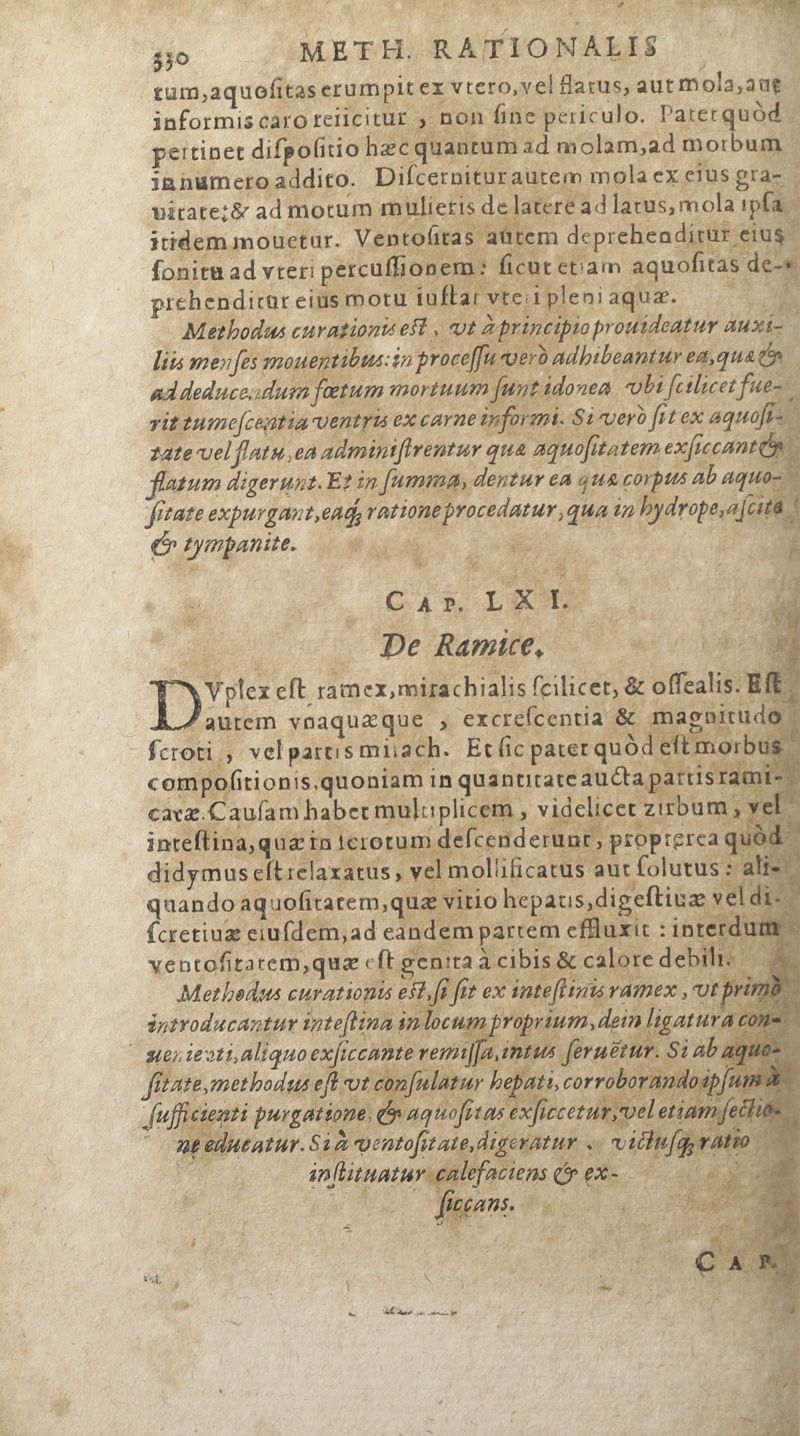 330 METH. RATIONALIS
tum,aquoſitas erumpit ex vtero,vel flatus, aut mola,aut
informis caro reiicitur , non ſine periculo. Patet quòd
pertinet diſpoſitio hæc quantum ad molam,ad morbum
in numero addito. Diſcernitur autem mola ex eius gra-
uitate;& ad motum mulieris de latere ad latus,mola ipſa
itidem mouetur. Ventoſitas autem deprehenditur eius
ſonitu ad vteri percuſſionem: ſicut etiam aquoſitas de-
prehenditur eius motu iuſtar vteri pleni aquæ.
Methodus curationis eſt , vt à principio prouideatur auxi-
liis menſes mouentibus: in proceſſu verò adhibeantur ea, quæ &
ad deducendum fœtum mortuum ſunt idonea vbi ſcilicet fue-
rit tumeſcentia ventris ex carne informi. Si verò ſit ex aquoſi-
tate vel flatu,ea adminiſtrentur quæ aquoſitatem exſiccant &
flatum digerunt. Et in ſumma, dentur ea quæ corpus ab aquo-
ſitate expurgant,eaq; ratione procedatur, qua in hydrope,aſcita
& tympanite.
CAP. LXI.
De Ramice.
DVplex eſt ramex,mirachialis ſcilicet, & oſſealis. Eſt
autem vnaquæque , excreſcentia & magnitudo
ſcroti , vel partis mirach. Et ſic patet quòd eſt morbus
compoſitionis,quoniam in quantitate aucta partis rami-
catæ.Cauſam habet multiplicem , videlicet zirbum , vel
inteſtina,quæ in ſcrotum deſcenderunt , propterea quòd
didymus eſt relaxatus, vel mollificatus aut ſolutus : ali-
quando aquoſitatem,quæ vitio hepatis,digeſtiuæ vel di-
ſcretiuæ eiuſdem,ad eandem partem effluxit : interdum
ventoſitatem,quæ eſt genita à cibis & calore debili.
Methodus curationis eſt,ſi ſit ex inteſtinis ramex , vt primò
introducantur inteſtina in locum proprium, dein ligatura con-
uenienti,aliquo exſiccante remiſſa,intus ſeruẽtur. Si ab aquo-
ſitate,methodus eſt vt conſulatur hepati, corroborando ipſum à
ſufficienti purgatione, & aquoſitas exſiccetur,vel etiam ſectio-
ne educatur. Si à ventoſitate,digeratur . victuſq; ratio
inſtituatur calefaciens & ex-
ſiccans.
CAP.